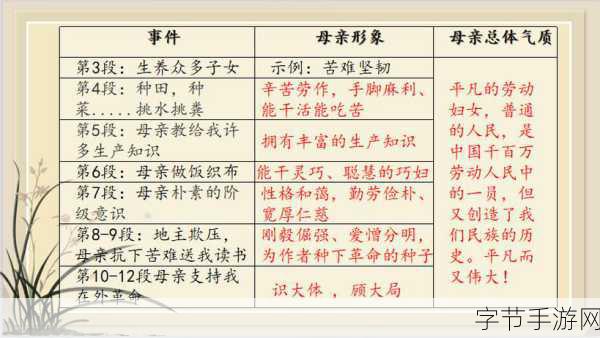 事件 母亲形象 母亲总体气质
第3段：生养众多子女 示例：苦难坚韧
第4段：种田，种
菜.....挑水挑粪
辛苦劳作，手脚麻利、
能干活能吃苦
第5段：母亲教给我许
多生产知识
拥有丰富的生产知识
第6段：母亲做饭织布 能干灵巧、聪慧的巧妇
第7段：母亲朴素的阶
级意识
性格和蔼，勤劳俭朴、
宽厚仁慈
第8-9段：地主欺压，
母亲抗下苦难送我读书
刚毅倔强、爱憎分明，
为作者种下革命的种子
第10-12段母亲支持我
在外革命
识大体 ，顾大局
平凡的劳动
妇女，普通
的人民，是
中国千百万
劳动人民中
的一员，但
又创造了我
们民族的历
史。平凡而
又伟大！
字节手游网